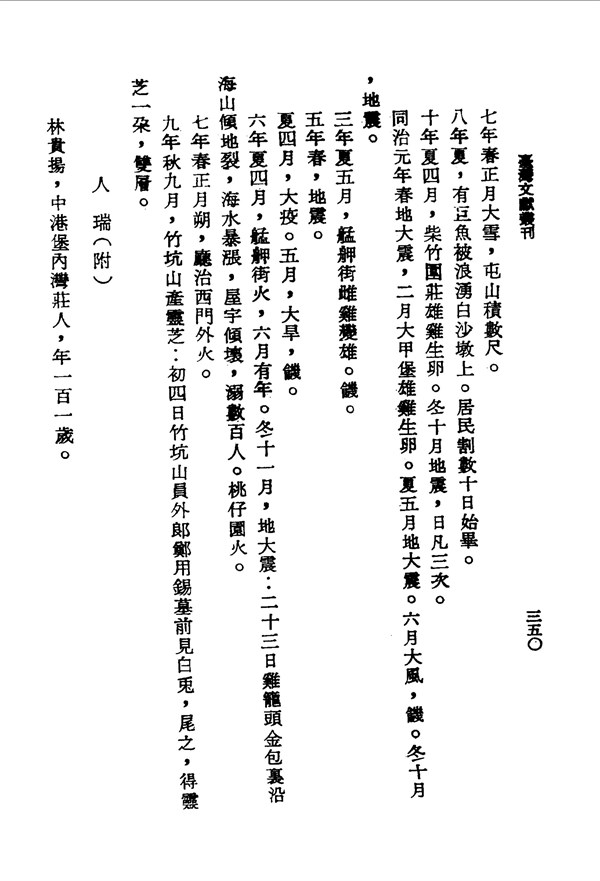 臺灣文獻叢刊
三五〇
七年春正月大雪，屯山積數尺。
八年夏，有巨魚被浪湧白沙墩上。居民割數十日始畢。
十年夏四月，柴竹圍莊雄雞生卵。冬十月地震，日凡三次。
同治元年春地大震，二月大甲堡雄雞生卵。夏五月地大震。六月大風，饑。冬十月
，地震。
三年夏五月，艋舺街雌雞變雄。饑。
五年春，地震。
夏四月，大疫。五月，大旱，饑。
六年夏四月，艋舺街火，六月有年。冬十一月，地大震：二十三日雞籠頭金包裏沿
海山傾地裂，海水暴漲，屋宇傾壞，溺數百人。桃仔園火。
七年春正月朔，廳治西門外火。
九年秋九月，竹坑山產靈芝：初四日竹坑山員外郎鄭用錫墓前見白兎，尾之，得靈
芝一朶，雙層。
人　瑞（附）
林貴揚，中港堡內灣莊人，年一百一歲。